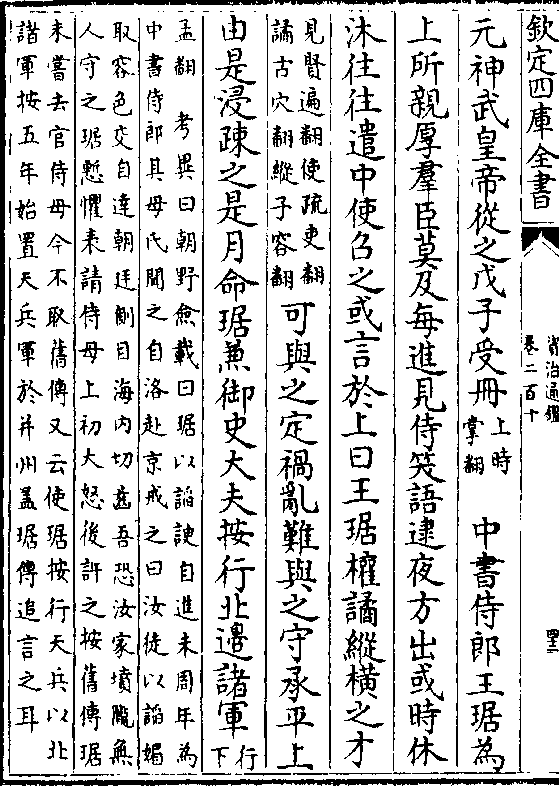 欽定四庫全書
資治通鑑
卷二百十
元神武皇帝從之戊子受冊
上時
掌翻
中書侍郎王琚為
上所親厚羣臣莫及每進見侍笑語逮夜方出或時休
沐往往遣中使召之或言於上曰王琚權譎縱橫之才
見賢遍翻使疏吏翻
譎古穴翻縱子容翻
可與之定禍亂難與之守承平上
由是浸疎之是月命琚兼御史大夫按行北邊諸軍
行
下
孟翻 考異曰朝野僉載曰琚以謟諛自進未周年為
中書侍郎其母氏聞之自洛赴京戒之曰汝徒以謟媚
取容色交自達朝廷側目海内切齒吾恐汝家墳隴無
人守之琚慙懼表請侍母上初大怒後許之按舊傳琚
未嘗去官侍母今不取舊傳又云使琚按行天兵以北
諸軍按五年始置天兵軍於并州盖琚傳追言之耳